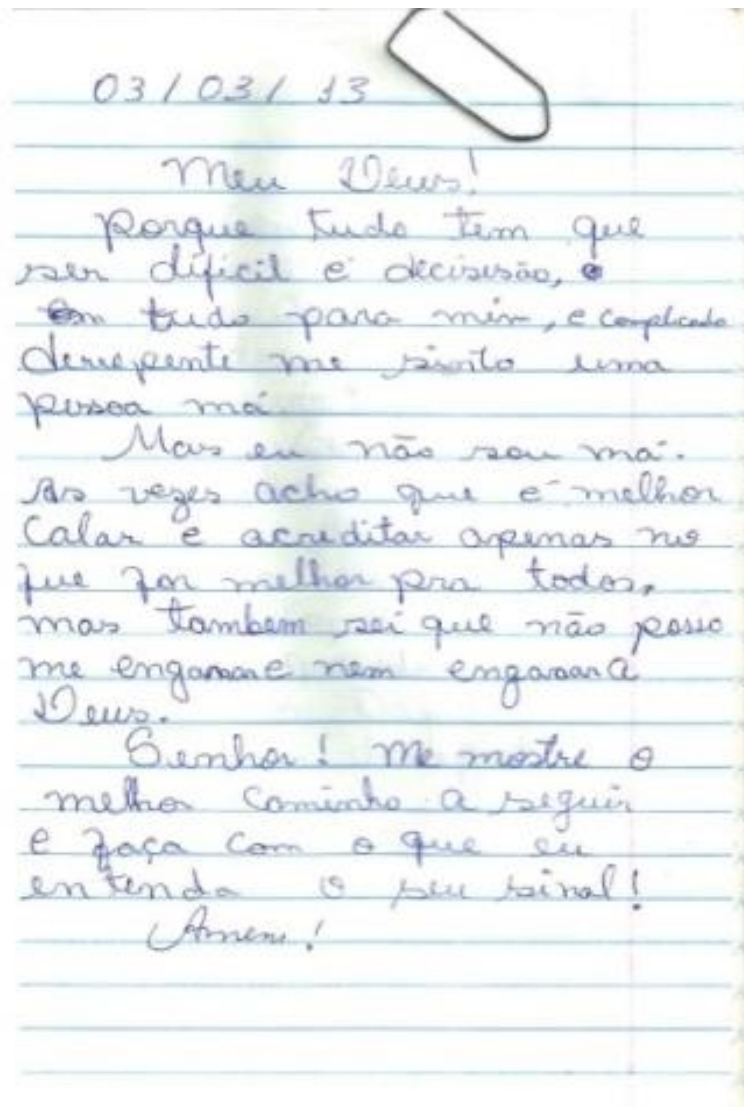 03/03/13
Meu Deus!
Porque tudo tem que
ser dificil e decisisão, e
tudo para mim, e complicado
derrepente me sinto uma
pessoa má.
Mais eu não sou má.
As vezes acho que é melhor
Calar e acreditar apenas no
que for melhor pra todos,
mas tambem sei que não posso
me enganar e nem enganar a
Deus.
Senhor! Me mostre o
melhor Caminho a seguir
e faça com o que eu
entenda o seu sinal!
Amem!